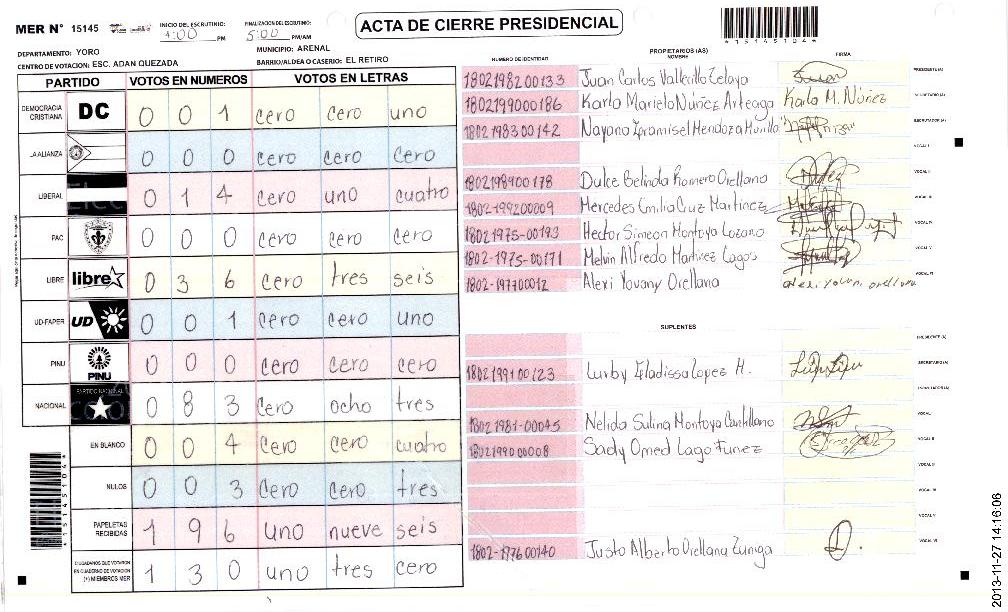 MER N° 15145
INICIO DEL ESCRUTINIO: 4:00 PM
FINALIZACION DEL ESCRUTINIO: 5:00 PM/AM
ACTA DE CIERRE PRESIDENCIAL
*15145104*
DEPARTAMENTO: YORO
MUNICIPIO: ARENAL
CENTRO DE VOTACION: ESC. ADAN QUEZADA
BARRIO/ALDEA O CASERIO: EL RETIRO
PARTIDO VOTOS EN NUMEROS VOTOS EN LETRAS
DEMOCRACIA CRISTIANA DC 0 0 1 cero cero uno
LA ALIANZA 0 0 0 cero cero cero
LIBERAL 0 1 4 cero uno cuatro
PAC 0 0 0 cero cero cero
LIBRE libre 0 3 6 cero tres seis
UD-FAPER UD 0 0 1 cero cero uno
PINU PINU 0 0 0 cero cero cero
NACIONAL PARTIDO NACIONAL 0 8 3 cero ocho tres
EN BLANCO 0 0 4 cero cero cuatro
NULOS 0 0 3 cero cero tres
PAPELETAS RECIBIDAS 1 9 6 uno nueve seis
CIUDADANOS QUE VOTARON EN CUADERNO DE VOTACION (+) MIEMBROS MER 1 3 0 uno tres cero
PROPIETARIOS (AS)
NUMERO DE IDENTIDAD NOMBRE FIRMA
1802198200133 Juan Carlos Vallecillo Zelaya PRESIDENTE (A)
1802199000186 Karla Mariela Núñez Arteaga Karla M. Núñez SECRETARIO (A)
1802198300142 Mendoza ESCRUTADOR (A)
VOCAL I
1802198400178 Dulce Belinda Romero Orellana VOCAL II
1802-199200009 Mercedes Emilia Cruz Martinez VOCAL III
18021975-00193 Hector Simeon Montoya Lozano VOCAL IV
1802-1975-00171 Melvin Alfredo Martinez Lagos VOCAL V
1802-197700012 Alexi Yovany Orellana alexi yovany orellana VOCAL VI
SUPLENTES
PRESIDENTE (A)
1802199100123 Lurby Lopez H. SECRETARIO (A)
ESCRUTADOR (A)
18021981-00045 Nelida Sulina Montoya Cantillano VOCAL I
1802199000008 Saely Omed Lago Funez VOCAL II
VOCAL III
VOCAL IV
VOCAL V
1802-197600140 Justo Alberto Orellana Zuniga VOCAL VI
*15145104*
2013-11-27 14:16:06